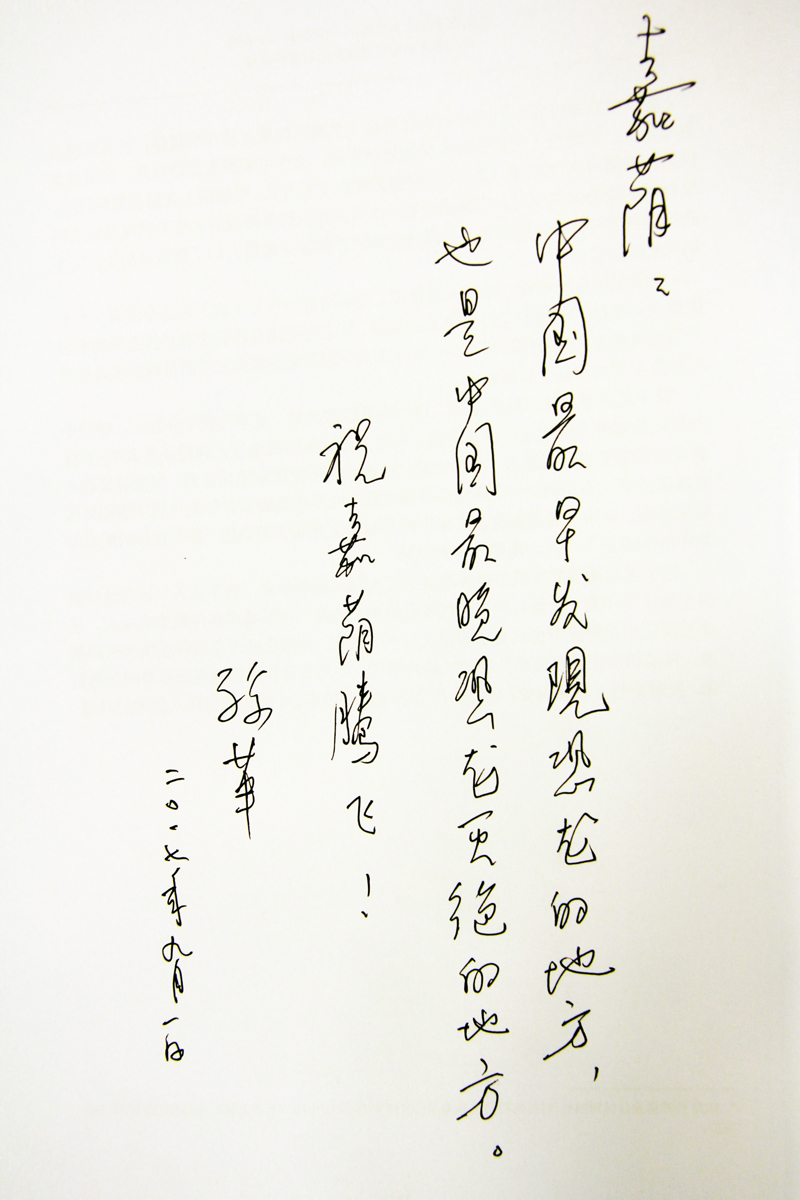 嘉荫:
中国最早发现恐龙的地方,
也是中国最晚恐龙灭绝的地方。
祝嘉荫腾飞!
孙革
二〇一七年九月一日